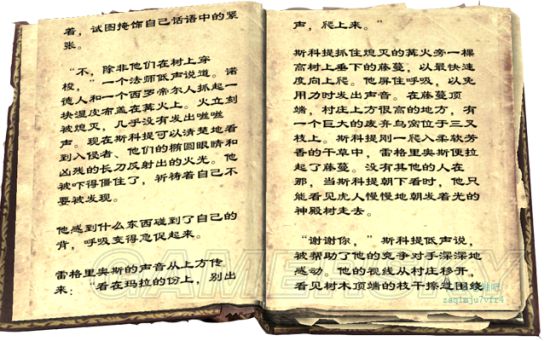 着，试图掩饰自己话语中的紧
张。
“不，除非他们在树上穿
梭，”一个法师低声说道。诺
德人和一个西罗帝尔人抓起一
块湿皮布盖在篝火上。火立刻
被熄灭，几乎没有发出咝咝
声。现在斯科提可以清楚地看
到入侵者、他们的椭圆眼睛和
凶残的长刀反射出的火光。他
被吓得僵住了，祈祷着自己不
要被发现。
他感到什么东西碰到了自己的
背，呼吸变得急促起来。
雷格里奥斯的声音从上方传
来：“看在玛拉的份上，别出
声，爬上来。”
斯科提抓住熄灭的篝火旁一棵
高树上垂下的藤蔓，以最快速
度向上爬。他屏住呼吸，以免
用力时发出声音。在藤蔓顶
端，村庄上方很高的地方，有
一个巨大的废弃鸟窝位于三叉
枝上。斯科提刚一爬入柔软芳
香的干草中，雷格里奥斯便拉
起了藤蔓。没有其他的人在
那，当斯科提朝下看时，他只
能看见虎人慢慢地朝发着光的
神殿树走去。
“谢谢你，”斯科提低声说，
被帮助了他的竞争对手深深地
感动。他的视线从村庄移开，
看见树木顶端的枝干擦过围绕
GAMERSKY
zaqimju7vfr4